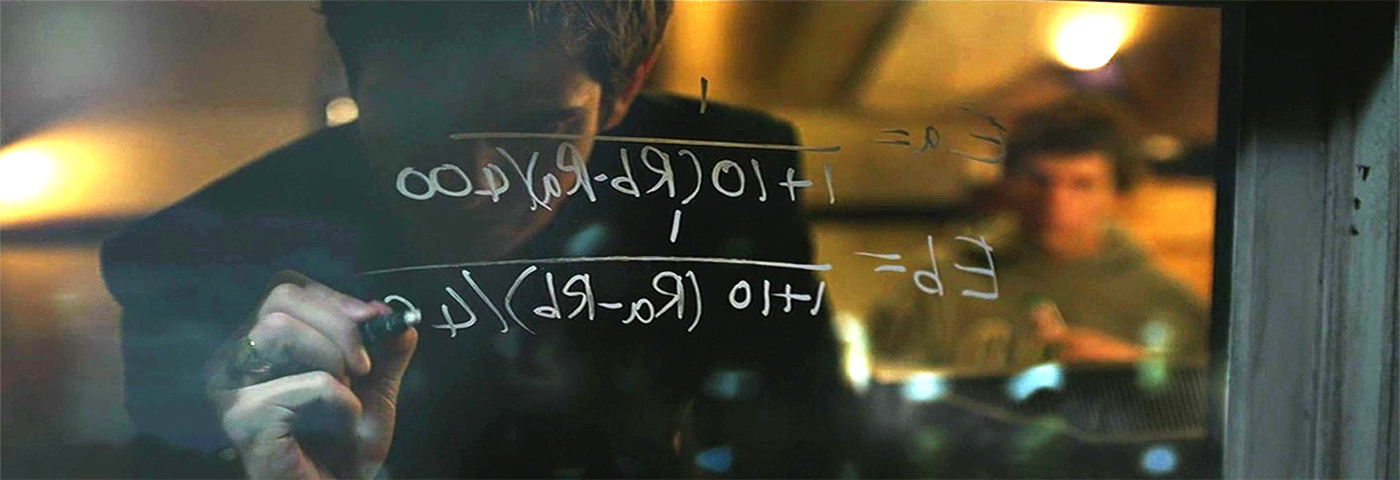 1
Ea =
1+10 (Rb-Ra)/400
1
Eb =
1+10 (Ra-Rb)/4